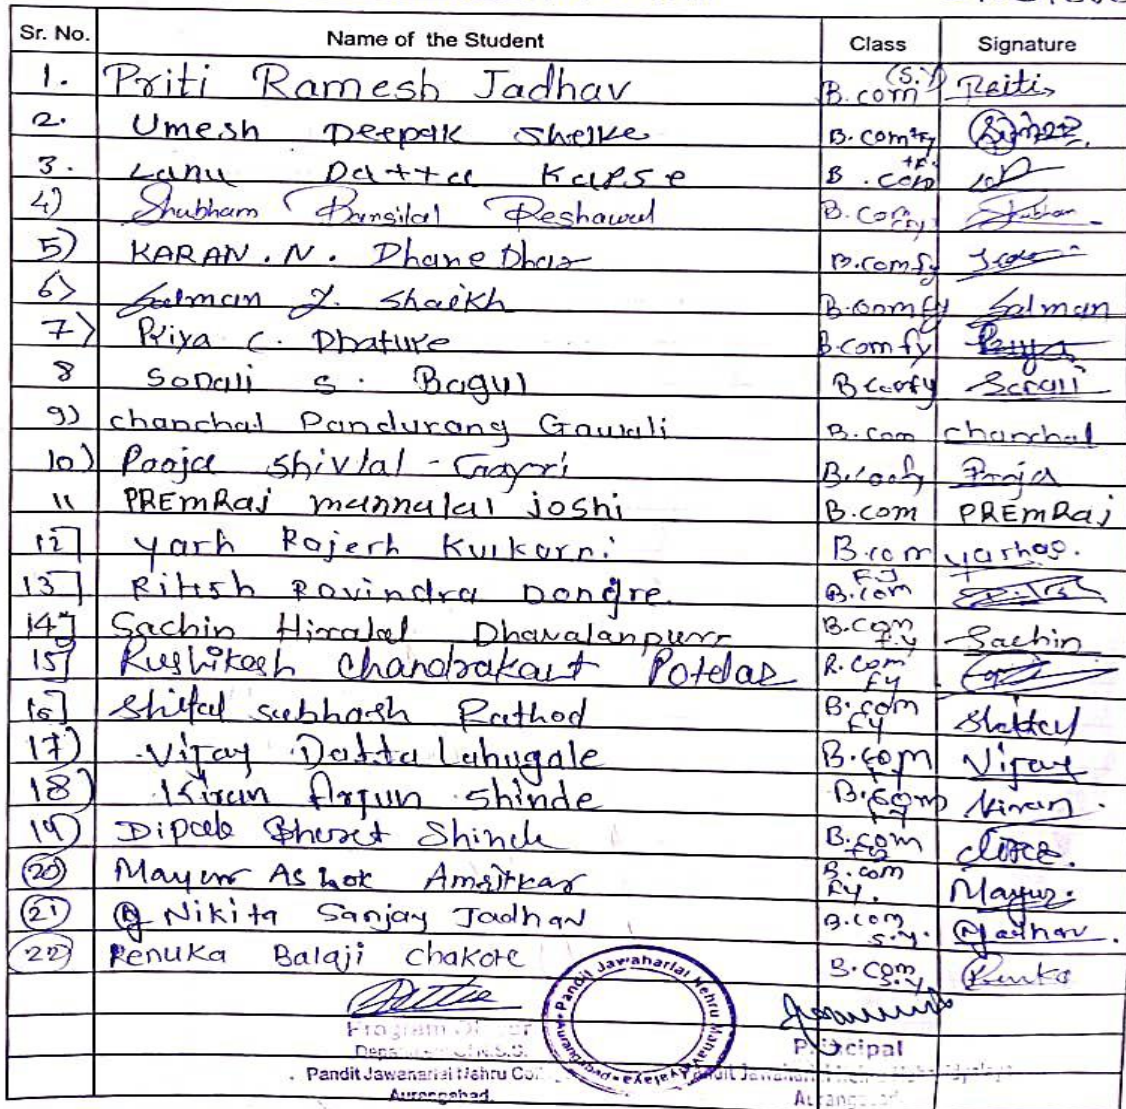 Sr. No. Name of the Student Class Signature
1. Priti Ramesh Jadhav B.com (S.Y) Priti
2. Umesh Deepak Shelke B.com fy
3. Datta Kapse B.com
4) Shubham Bansilal B.com fy
5) KARAN. N. Dhanedhar B.com fy
6) Salman J. Shaikh B.com fy Salman
7) Priya C. Dhature B.com fy Priya
8 Sonali S. Bagul B com fy Sonali
9) chanchal Pandurang Gawali B.com chanchal
10) Pooja Shivlal B.com Pooja
11 PREmRaj mannalal joshi B.com PREmRaj
12] Yash Rajesh Kulkarni B.com
13] Ritesh Ravindra Dongre B.com F.Y
14] Sachin Hiralal B.com F.Y Sachin
15] Rushikesh Chandrakant Potdar B.com FY
16] Shital subhash Rathod B.com FY Shital
17) Vijay Datta Lahugale B.com FY Vijay
18) Kiran Arjun Shinde B.com FY Kiran
19) Shinde B.com
20) Mayur Ashok Amritkar B.com F.Y. Mayur
21) Nikita Sanjay Jadhav B.com S.Y. Jadhav
22) Renuka Balaji Chakote B.com S.Y
Pandit Jawaharlal Nehru
Program Principal
Pandit Jawaharlal Nehru
Aurangabad